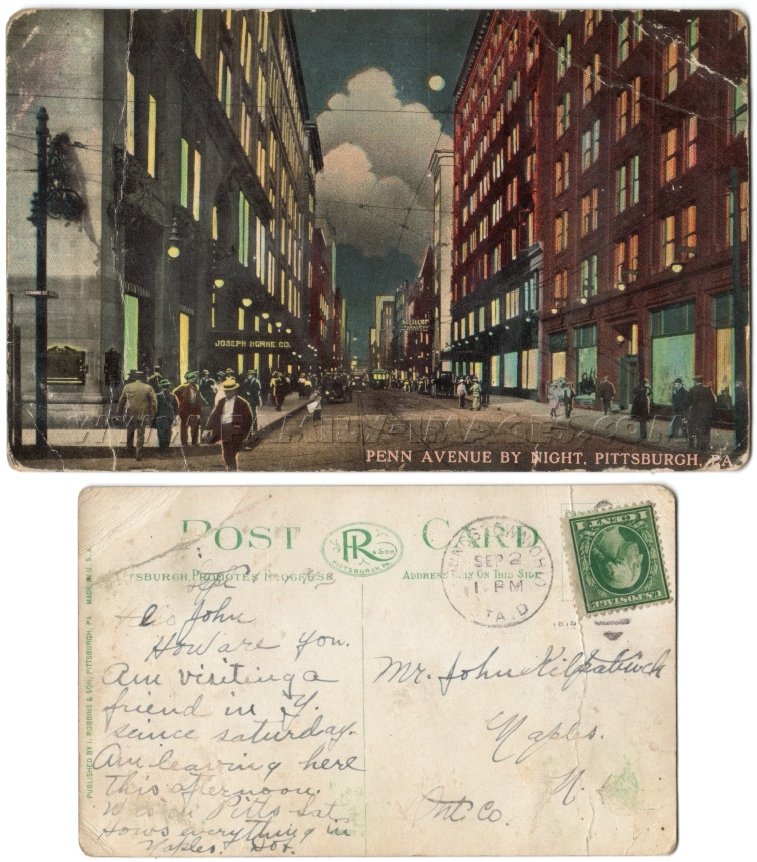 JOSEPH HORNE CO.
WWW.FAMILY-IMAGES.COM
PENN AVENUE BY NIGHT, PITTSBURGH, PA.
POST CARD
R & SON
PITTSBURGH, PA.
PITTSBURGH PROMOTES PROGRESS
ADDRESS ONLY ON THIS SIDE
PUBLISHED BY I. ROBBINS & SON, PITTSBURGH, PA. MADE IN U.S.A.
SEP 2
1 PM
STA. D
U.S. POSTAGE
1 CENT 1
Sept
John
How are you.
Am visiting a
friend in Y.
seince saturday.
Am leaving here
this afternoon.
in Pitts Sat
everything in
Naples. Dot.
Mr. John Kilpatrick
Naples.
N.
Ont Co.